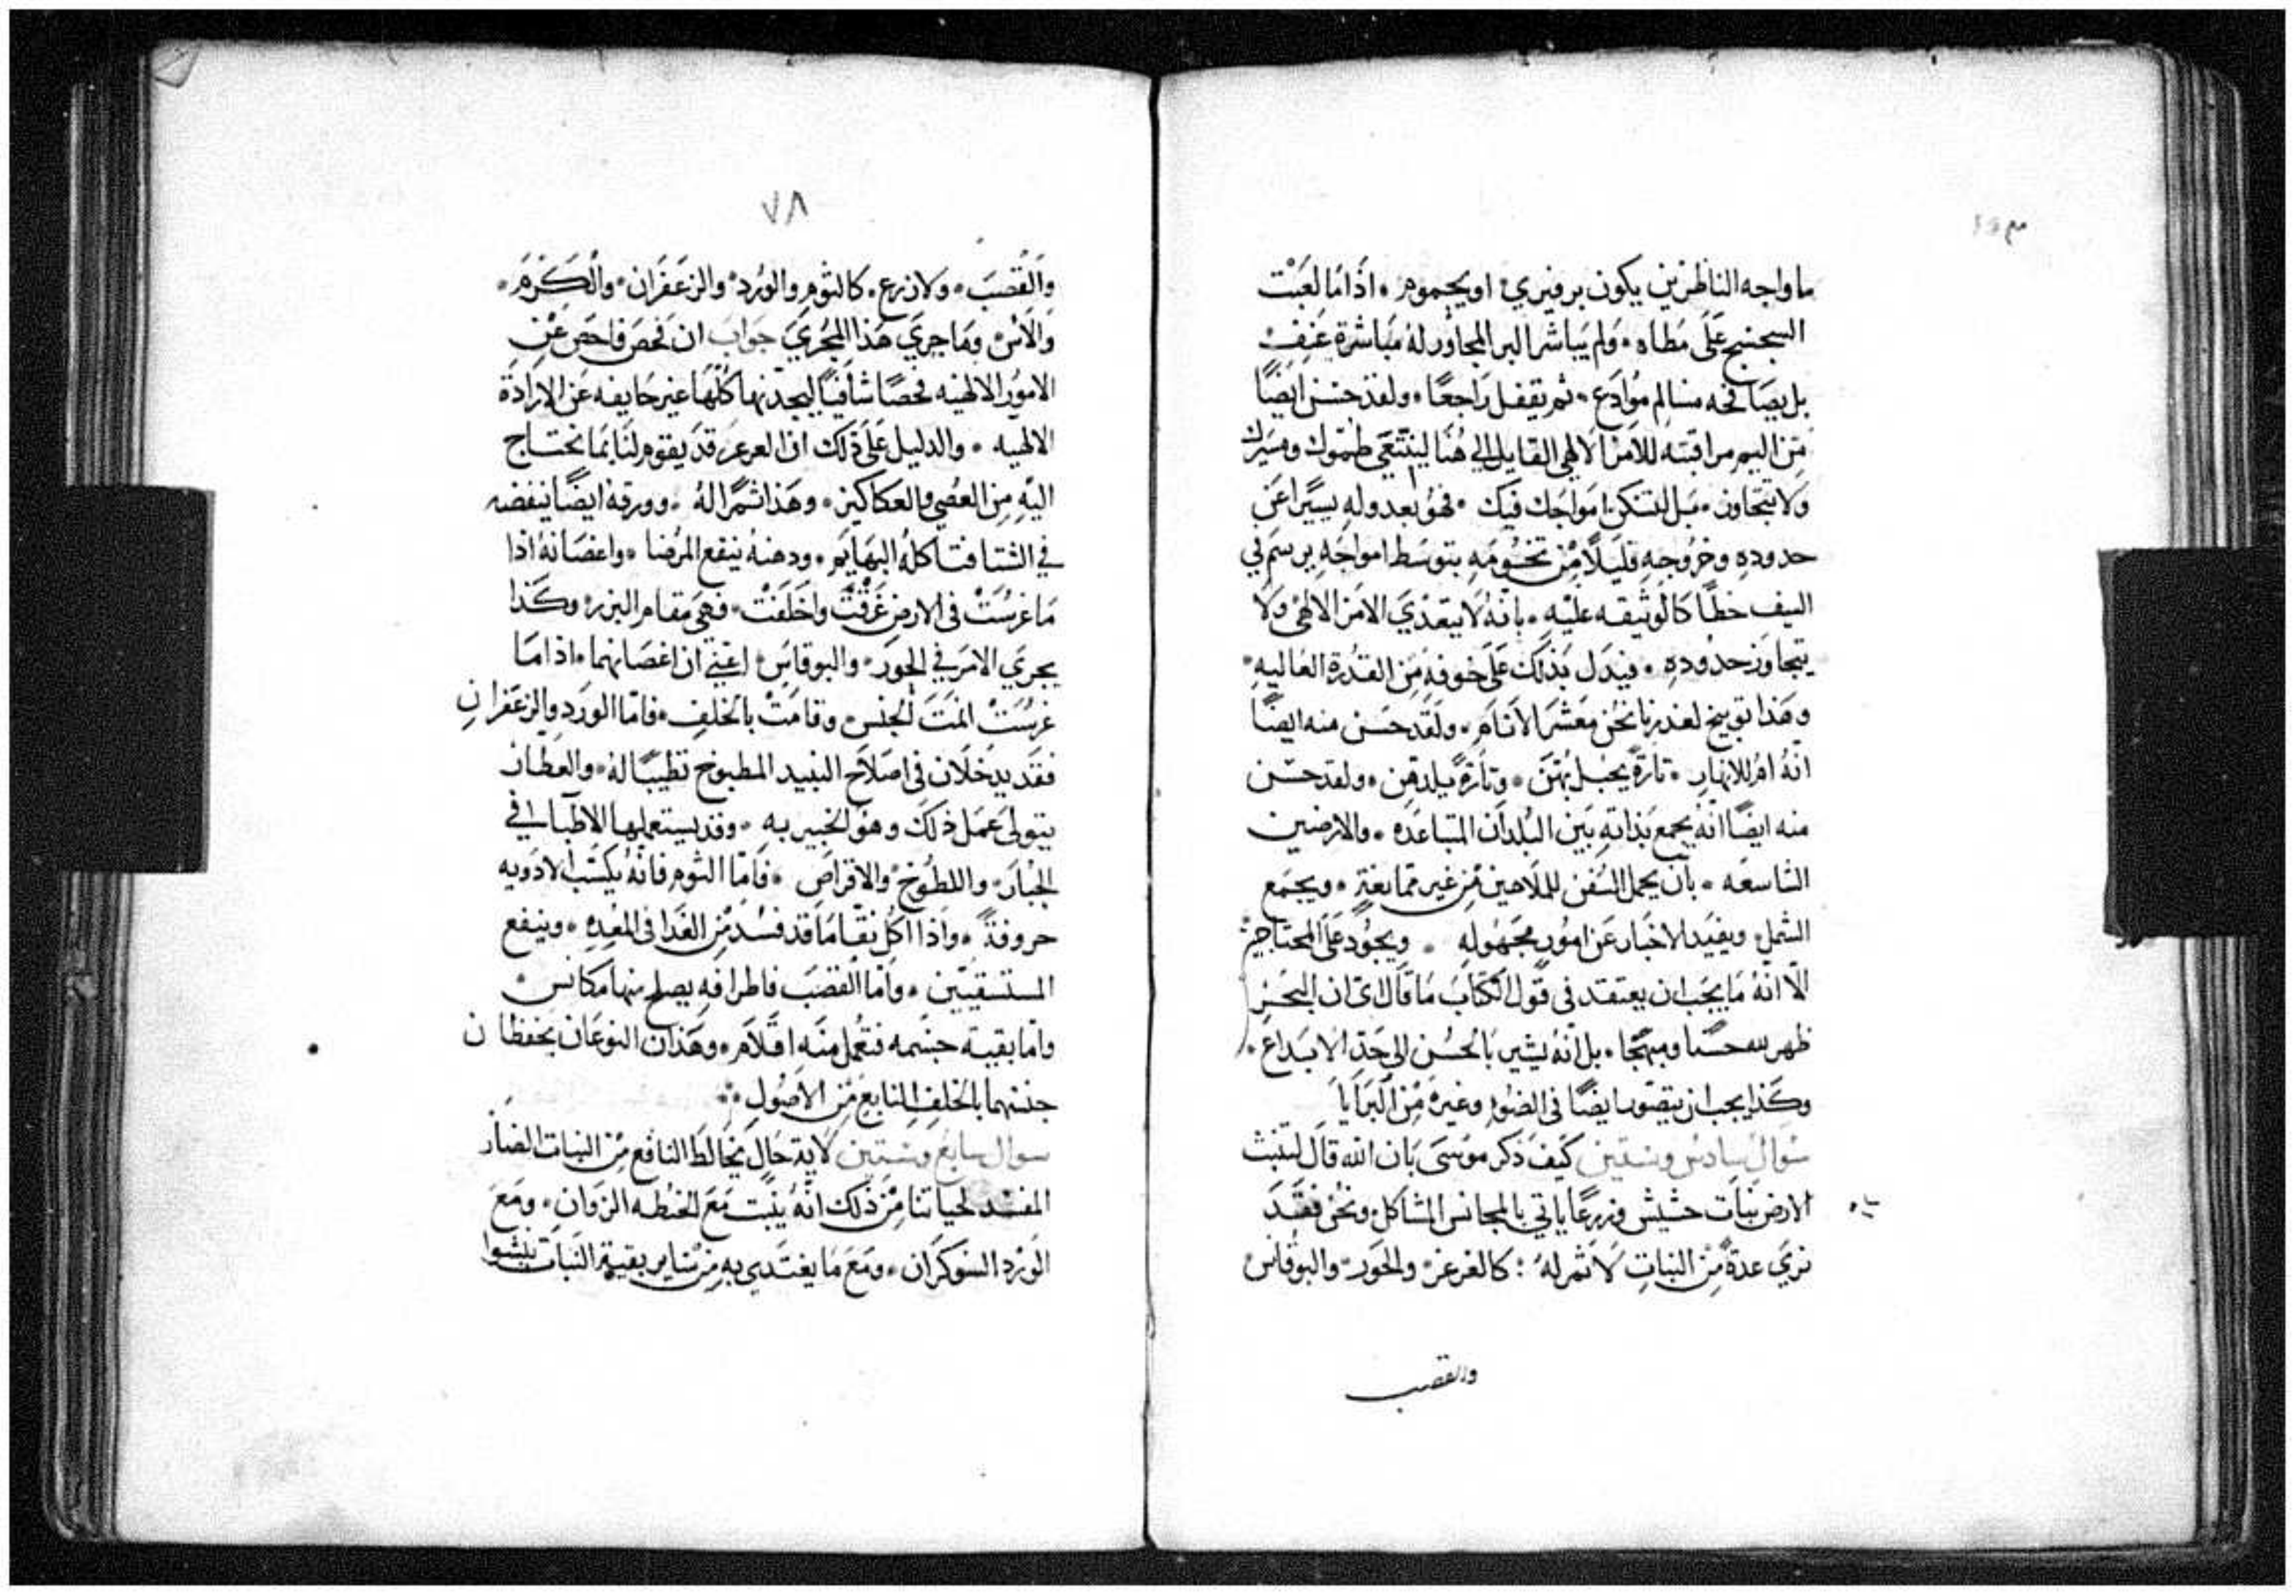 ما واجه الناظرين يكون برفيري او يحموم • اذا ما لعبت
السجسج على مطاه • ولم يباشر البر المجاور له مباشرة عنف
بل يصافحه مسالم موادع • ثم يقفل راجعًا • ولقد حسن ايضًا
من اليم مراقبته للامر الالهي القايل الي هنا لينتهي طموك ومسيرك
ولا تتجاوز • بل لتنكسر امواجك فيك • فهو بعدوله يسيرا عن
حدوده وخروجه قليلًا من تخومه بتوسط امواجه يرسم في
السيف خطًا كالوثيقه عليه • بانه لا يتعدي الامر الالهي ولا
يتجاوز حدوده • فيدل بذلك على خوفه من القدرة العاليه •
وهذا توبيخ لغدرنا نحن معشر الانام • ولقد حسن منه ايضًا
انه ام للانهار • تارة يحبل بهن • وتارة يلدهن • ولقد حسن
منه ايضًا انه يجمع بذاته بين البلدان المتباعده • والارضين
الشاسعه • بان يحمل السفن للملاحين من غير ممانعة • ويجمع
الشمل ويفيد الاخبار عن امور مجهوله • ويجود على المحتاجين
الا انه ما يجب ان يعتقد في قول الكتاب ما قال اي ان البحر
ظهر لله حسنا ومبهجًا • بل انه يشير بالحسن الى حد الابداع •
وكذا يجب ان يتصور ايضًا في الضو وغيره من البرايا
سوال سادس وستين كيف ذكر موسى بان الله قال لتنبت
الارض نبات حشيش وزرعًا ياتي بالمجانس المشاكل ونحن فقد
نري عدة من النبات لا ثمر له : كالعرعر والحور والبوقاس
والقصب
٧٨
والقصب • ولا زرع • كالثوم والورد والزعفران • والكرم •
والاس وما جري هذا المجري جواب ان فحص فاحص عن
الامور الالهيه فحصًا شافيًا ليجدنها كلها غير حايفه عن الارادة
الالهيه • والدليل على ذلك ان العرعر قد يقوم لنا بما نحتاج
اليه من العصي والعكاكيز • وهذا ثمرًا له • وورقه ايضًا ينفضه
في الشتا فتاكله البهايم • ودهنه ينفع المرضا • واغصانه اذا
ما غرست في الارض عرقت واخلفت • فهي مقام البزر وكذا
يجري الامر في الحور • والبوقاس اعني ان اغصانهما • اذا ما
غرست انمت الجنس وقامت بالخلف • فاما الورد والزعفران
فقد يدخلان في اصلاح النبيد المطبوخ تطيبًا له • والعطار
يتولى عمل ذلك وهو الخبير به • وقد يستعملها الاطبا في
الجبار واللطوخ والاقراص • فاما الثوم فانه يكسب الادويه
حروفة • واذا اكل نقا ما قد فسد من الغدا في المعده • وينفع
المستسقيين • واما القصب فاطرافه يصلح منها مكانس
واما بقية جسمه فتعمل منه اقلام • وهذان النوعان يحفظان
جنسهما بالخلف النابع من الاصول •
سوال سابع وستين لاية حال يخالط النافع من النبات الضار
المفسد لحياتنا من ذلك انه ينبت مع الحنطه الزوان • ومع
الورد السوكران • ومع ما يغتدي به من ساير بقية النبات